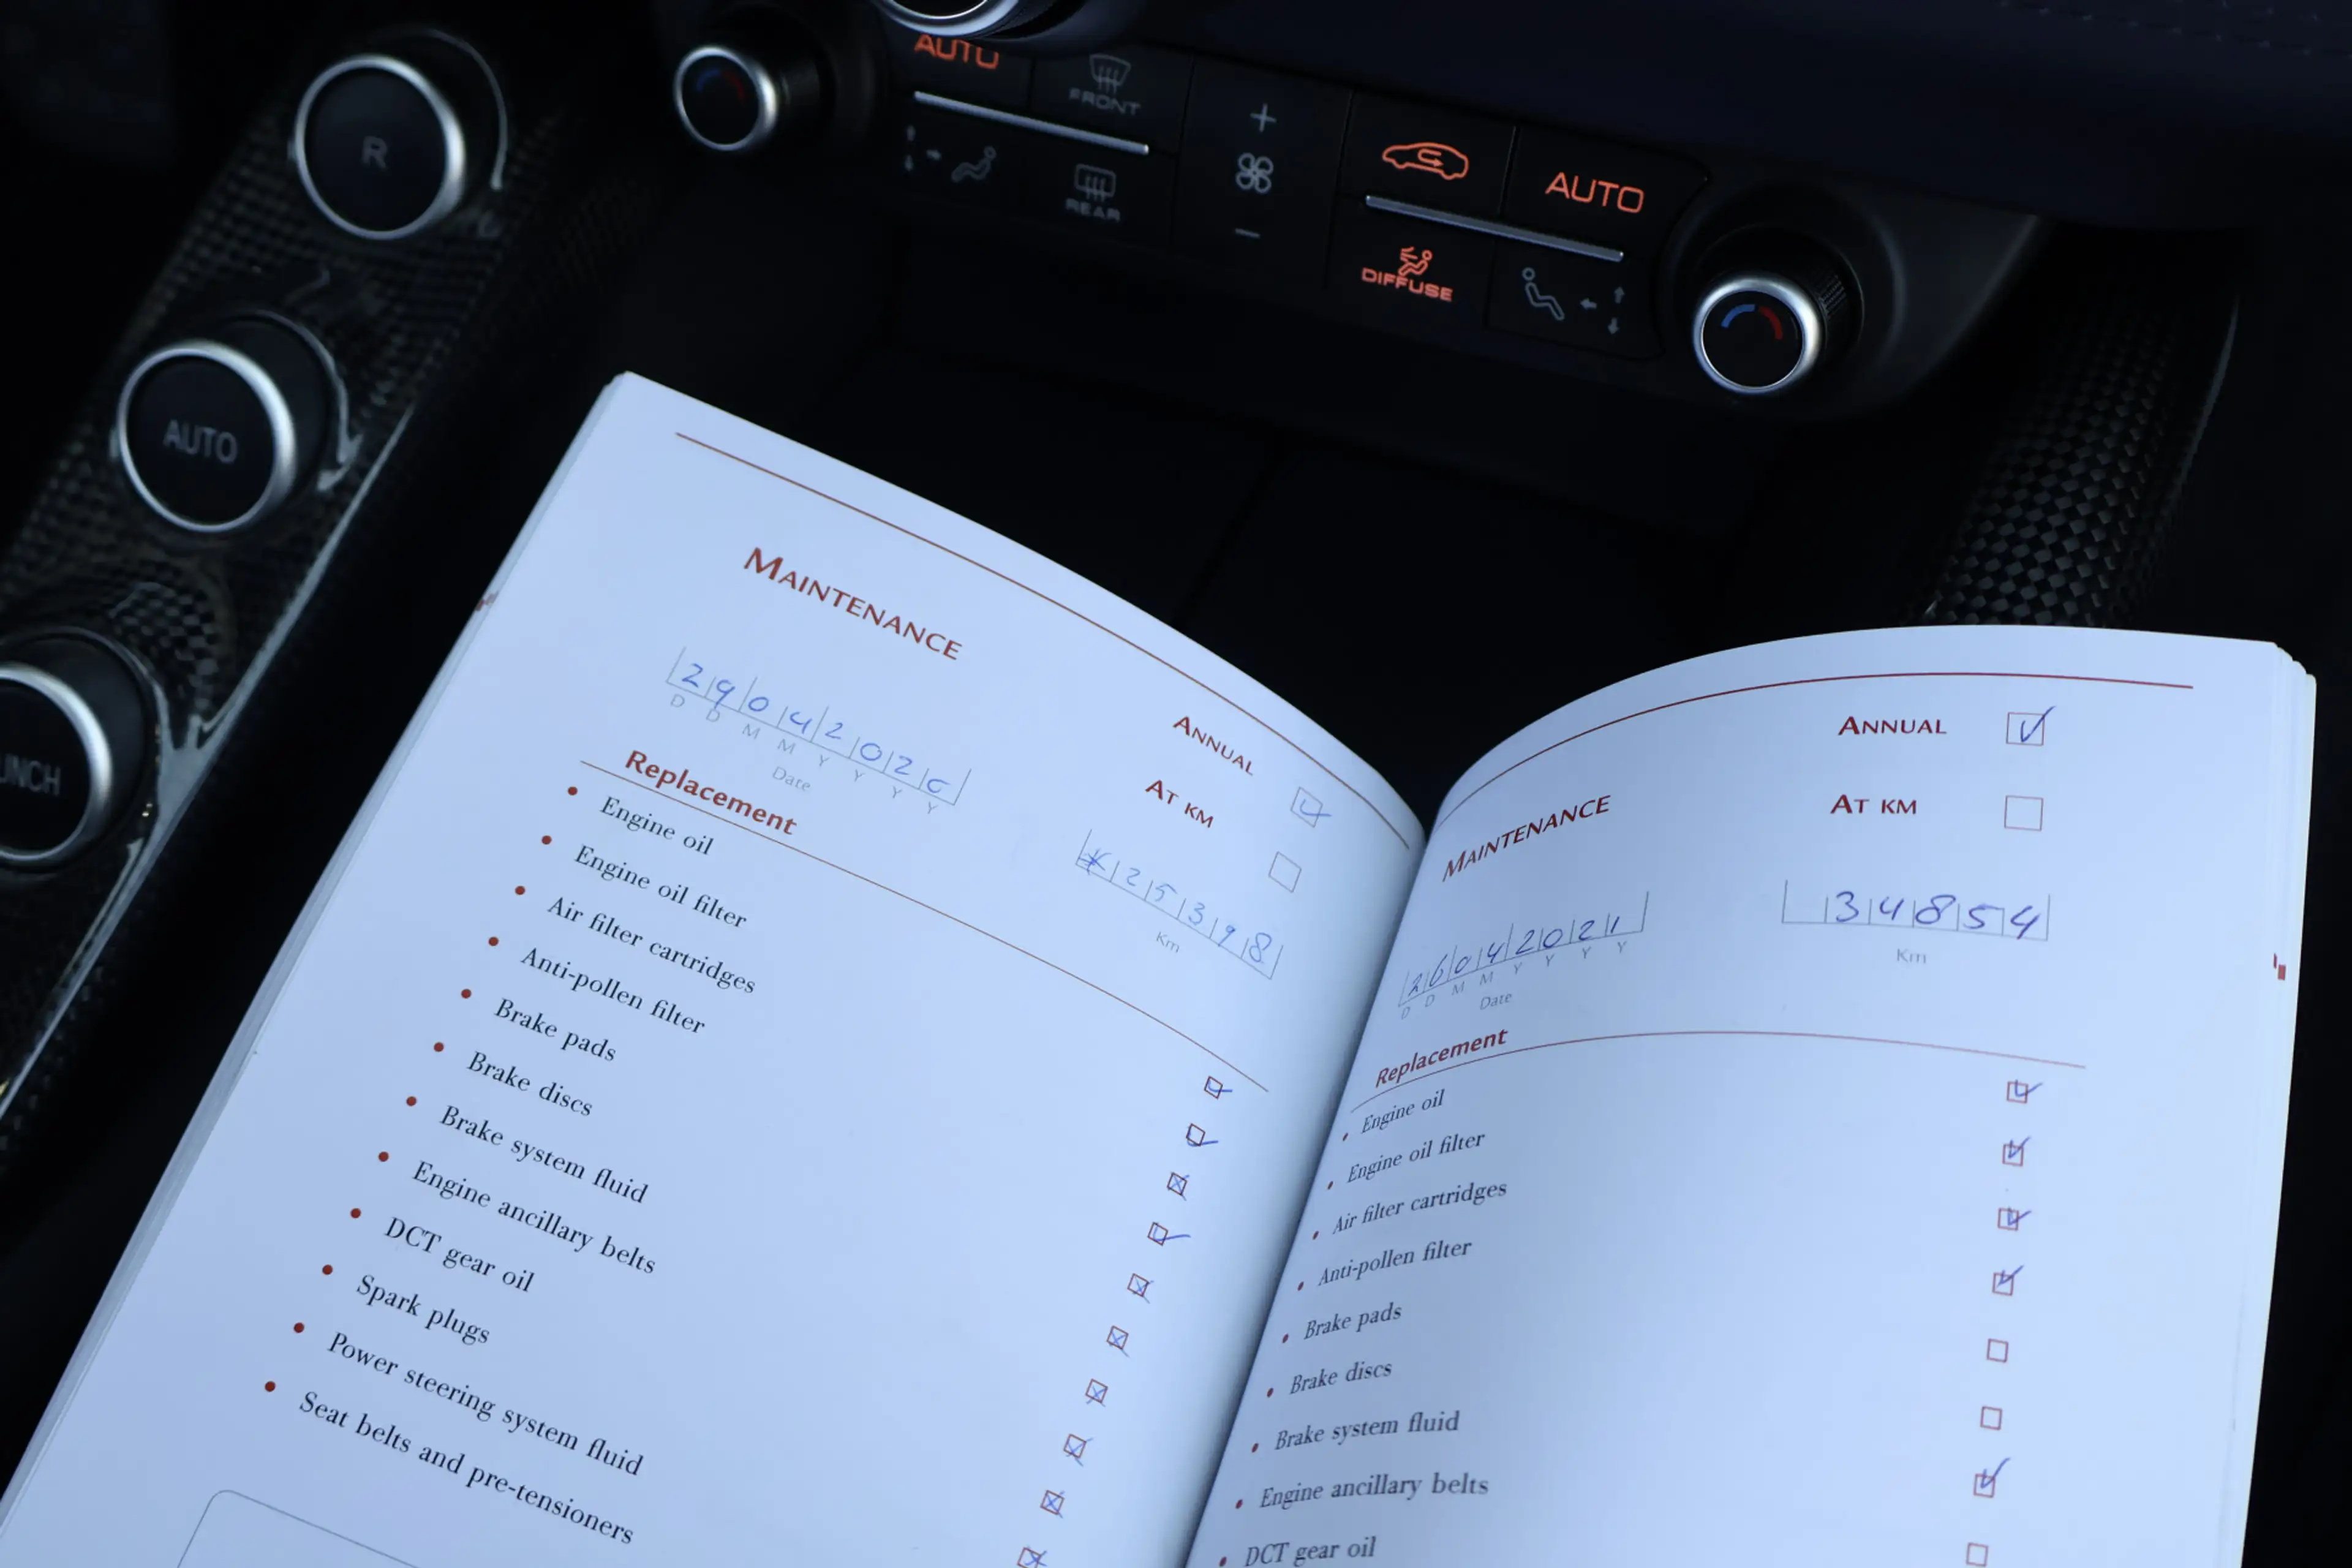 AUTO
FRONT
REAR
AUTO
DIFFUSE
R
AUTO
UNCH
MAINTENANCE
29042020
D D M M Y Y Y Y
Date
ANNUAL
AT KM
25398
Km
Replacement
Engine oil
Engine oil filter
Air filter cartridges
Anti-pollen filter
Brake pads
Brake discs
Brake system fluid
Engine ancillary belts
DCT gear oil
Spark plugs
Power steering system fluid
Seat belts and pre-tensioners
MAINTENANCE
ANNUAL
AT KM
26042021
D D M M Y Y Y Y
Date
34854
Km
Replacement
Engine oil
Engine oil filter
Air filter cartridges
Anti-pollen filter
Brake pads
Brake discs
Brake system fluid
Engine ancillary belts
DCT gear oil